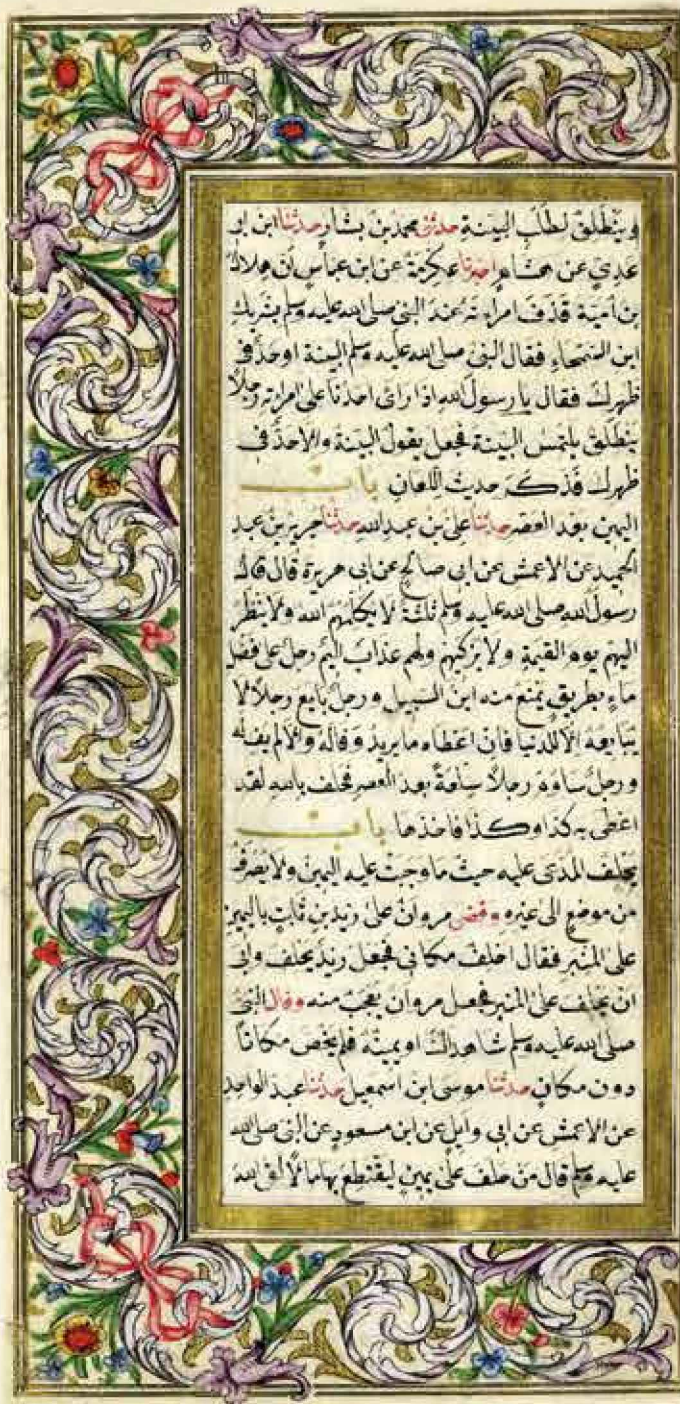 وينطلق لطلب البينة حدثني محمد بن بشار حدثنا ابن ابي
عدي عن هشام اخبرنا عكرمة عن ابن عباس أن هلال
بن أمية قذف امراته عند النبي صلى الله عليه وسلم بشريك
ابن السحماء فقال النبي صلى الله عليه وسلم البينة او حدٌ في
ظهرك فقال يا رسول الله اذا رأى احدنا على امراته رجلاً
ينطلق يلتمس البينة فجعل يقول البينة والاحدٌ في
ظهرك فذكر حديث اللعان باب
اليمين بعد العصر حدثنا علي بن عبد الله حدثنا جرير بن عبد
الحميد عن الاعمش عن ابي صالح عن ابي هريرة قال قال
رسول الله صلى الله عليه وسلم ثلثة لا يكلمهم الله ولا ينظر
اليهم يوم القيمة ولا يزكيهم ولهم عذاب اليم رجل على فضل
ماء بطريق يمنع منه ابن السبيل ورجل بايع رجلاً لا
يبايعه الا للدنيا فان اعطاه ما يريد وفاله والا لم يف له
ورجل ساوم رجلاً سلعةً بعد العصر فحلف بالله لقد
اعطى به كذا وكذا فاخذها باب
يحلف المدعى عليه حيث ما وجبت عليه اليمين ولا يصرف
من موضع الى غيره وقضى مروان على زيد بن ثابت باليمين
على المنبر فقال احلف مكاني فجعل زيد يحلف وابى
ان يحلف على المنبر فجعل مروان يعجب منه وقال النبي
صلى الله عليه وسلم شاهداك او يمينه فلم يخص مكاناً
دون مكان حدثنا موسى ابن اسمعيل حدثنا عبد الواحد
عن الاعمش عن ابي وايل عن ابن مسعود عن النبي صلى الله
عليه وسلم قال من حلف على يمين ليقتطع بها مالاً لقى الله